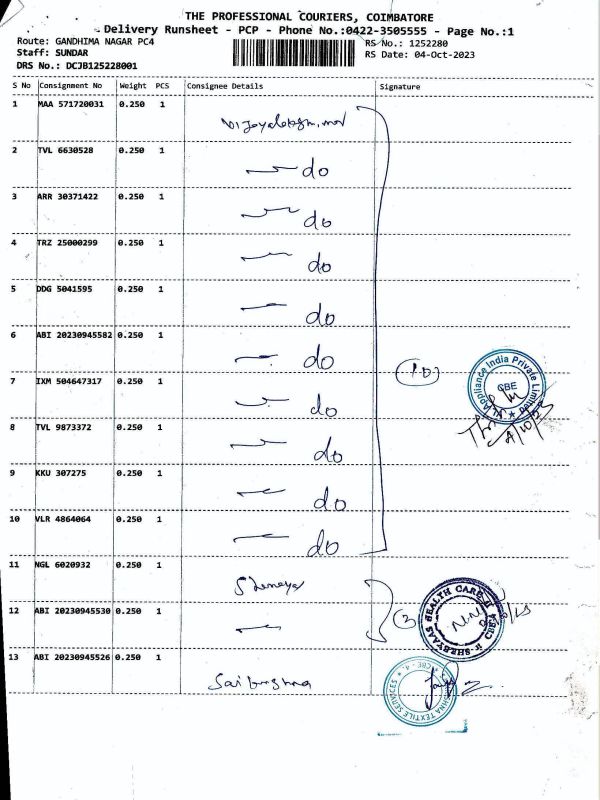 THE PROFESSIONAL COURIERS, COIMBATORE
Delivery Runsheet - PCP - Phone No.:0422-3505555 - Page No.:1
Route: GANDHIMA NAGAR PC4
RS No.: 1252280
Staff: SUNDAR
RS Date: 04-Oct-2023
DRS No.: DCJB125228001
S No Consignment No Weight PCS Consignee Details Signature
1 MAA 571720031 0.250 1
2 TVL 6630528 0.250 1 do
3 ARR 30371422 0.250 1 do
4 TRZ 25000299 0.250 1 do
5 DDG 5041595 0.250 1 do
6 ABI 20230945582 0.250 1 do
(10)
7 IXM 504647317 0.250 1 do
Appliance India Private Limited
CBE
8 TVL 9873372 0.250 1 do
9 KKU 307275 0.250 1 do
10 VLR 4864064 0.250 1 do
11 NGL 6020932 0.250 1
12 ABI 20230945530 0.250 1
HEALTH CARE
13 ABI 20230945526 0.250 1
TEXTILE SERVICES